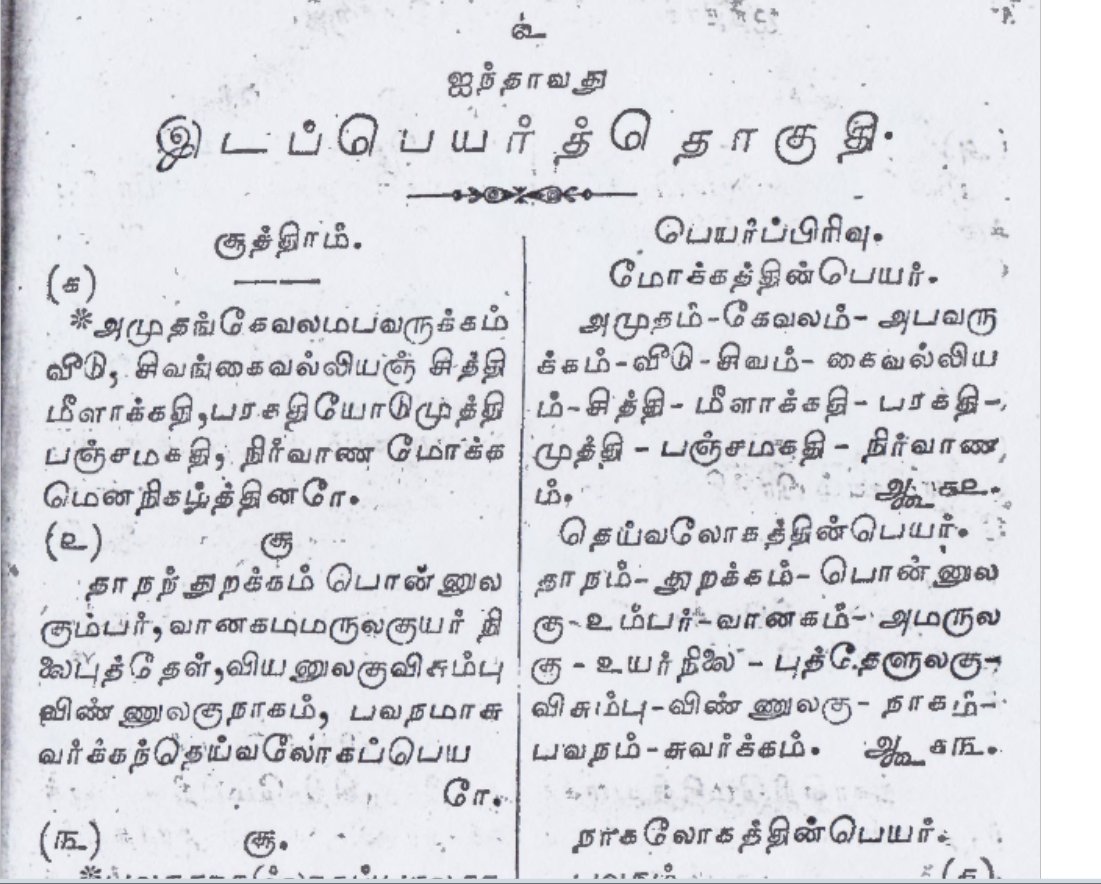 ௨
ஐந்தாவது
இடப்பெயர்த்தொகுதி.
சூத்திரம்.
(௧)
*அமுதங்கேவலமபவருக்கம்
வீடு, சிவங்கைவல்லியஞ் சித்தி
மீளாக்கதி,பரகதியோடுமுத்தி
பஞ்சமகதி, நிர்வாண மோக்க
மெனநிகழ்த்தினரே.
(௨) சூ
தாநந் துறக்கம் பொன்னுல
கும்பர்,வானகமமருலகுயர் நி
லைபுத்தேள்,வியனுலகுவிசும்பு
விண்ணுலகுநாகம், பவநமாசு
வர்க்கந்தெய்வலோகப்பெய
ரே.
(௩) சூ.
பெயர்ப்பிரிவு.
மோக்கத்தின்பெயர்.
அமுதம்-கேவலம்- அபவரு
க்கம்-வீடு-சிவம்- கைவல்லிய
ம்-சித்தி- மீளாக்கதி- பரகதி-
முத்தி - பஞ்சமகதி - நிர்வாண
ம். ஆக ௧௨.
தெய்வலோகத்தின்பெயர்.
தாநம்- துறக்கம்- பொன்னுல
கு-உம்பர்-வானகம்- அமருல
கு - உயர்நிலை - புத்தேளுலகு-
விசும்பு-விண்ணுலகு- நாகம்-
பவநம்-சுவர்க்கம். ஆக ௧௩.
நாகலோகத்தின்பெயர்.